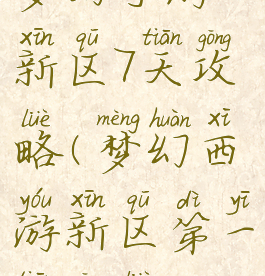 xīn qū tiān gōng
新区7天攻
lüè mèng huàn xī
略(梦幻西
yóu xīn qū dì yī
游新区第一